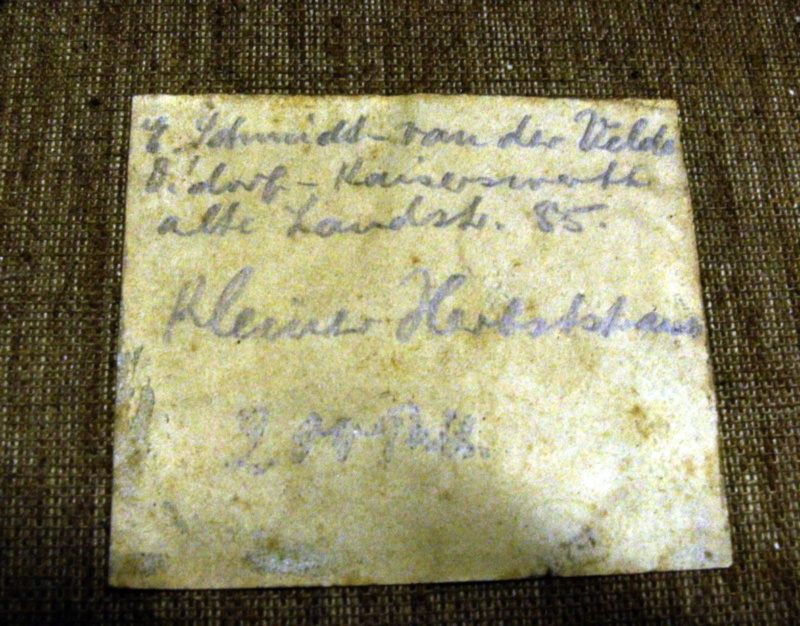 Schmidt-van der Velde
D'dorf - Kaiserswerth
alte Landstr. 85.
Kleiner Herbststrauss